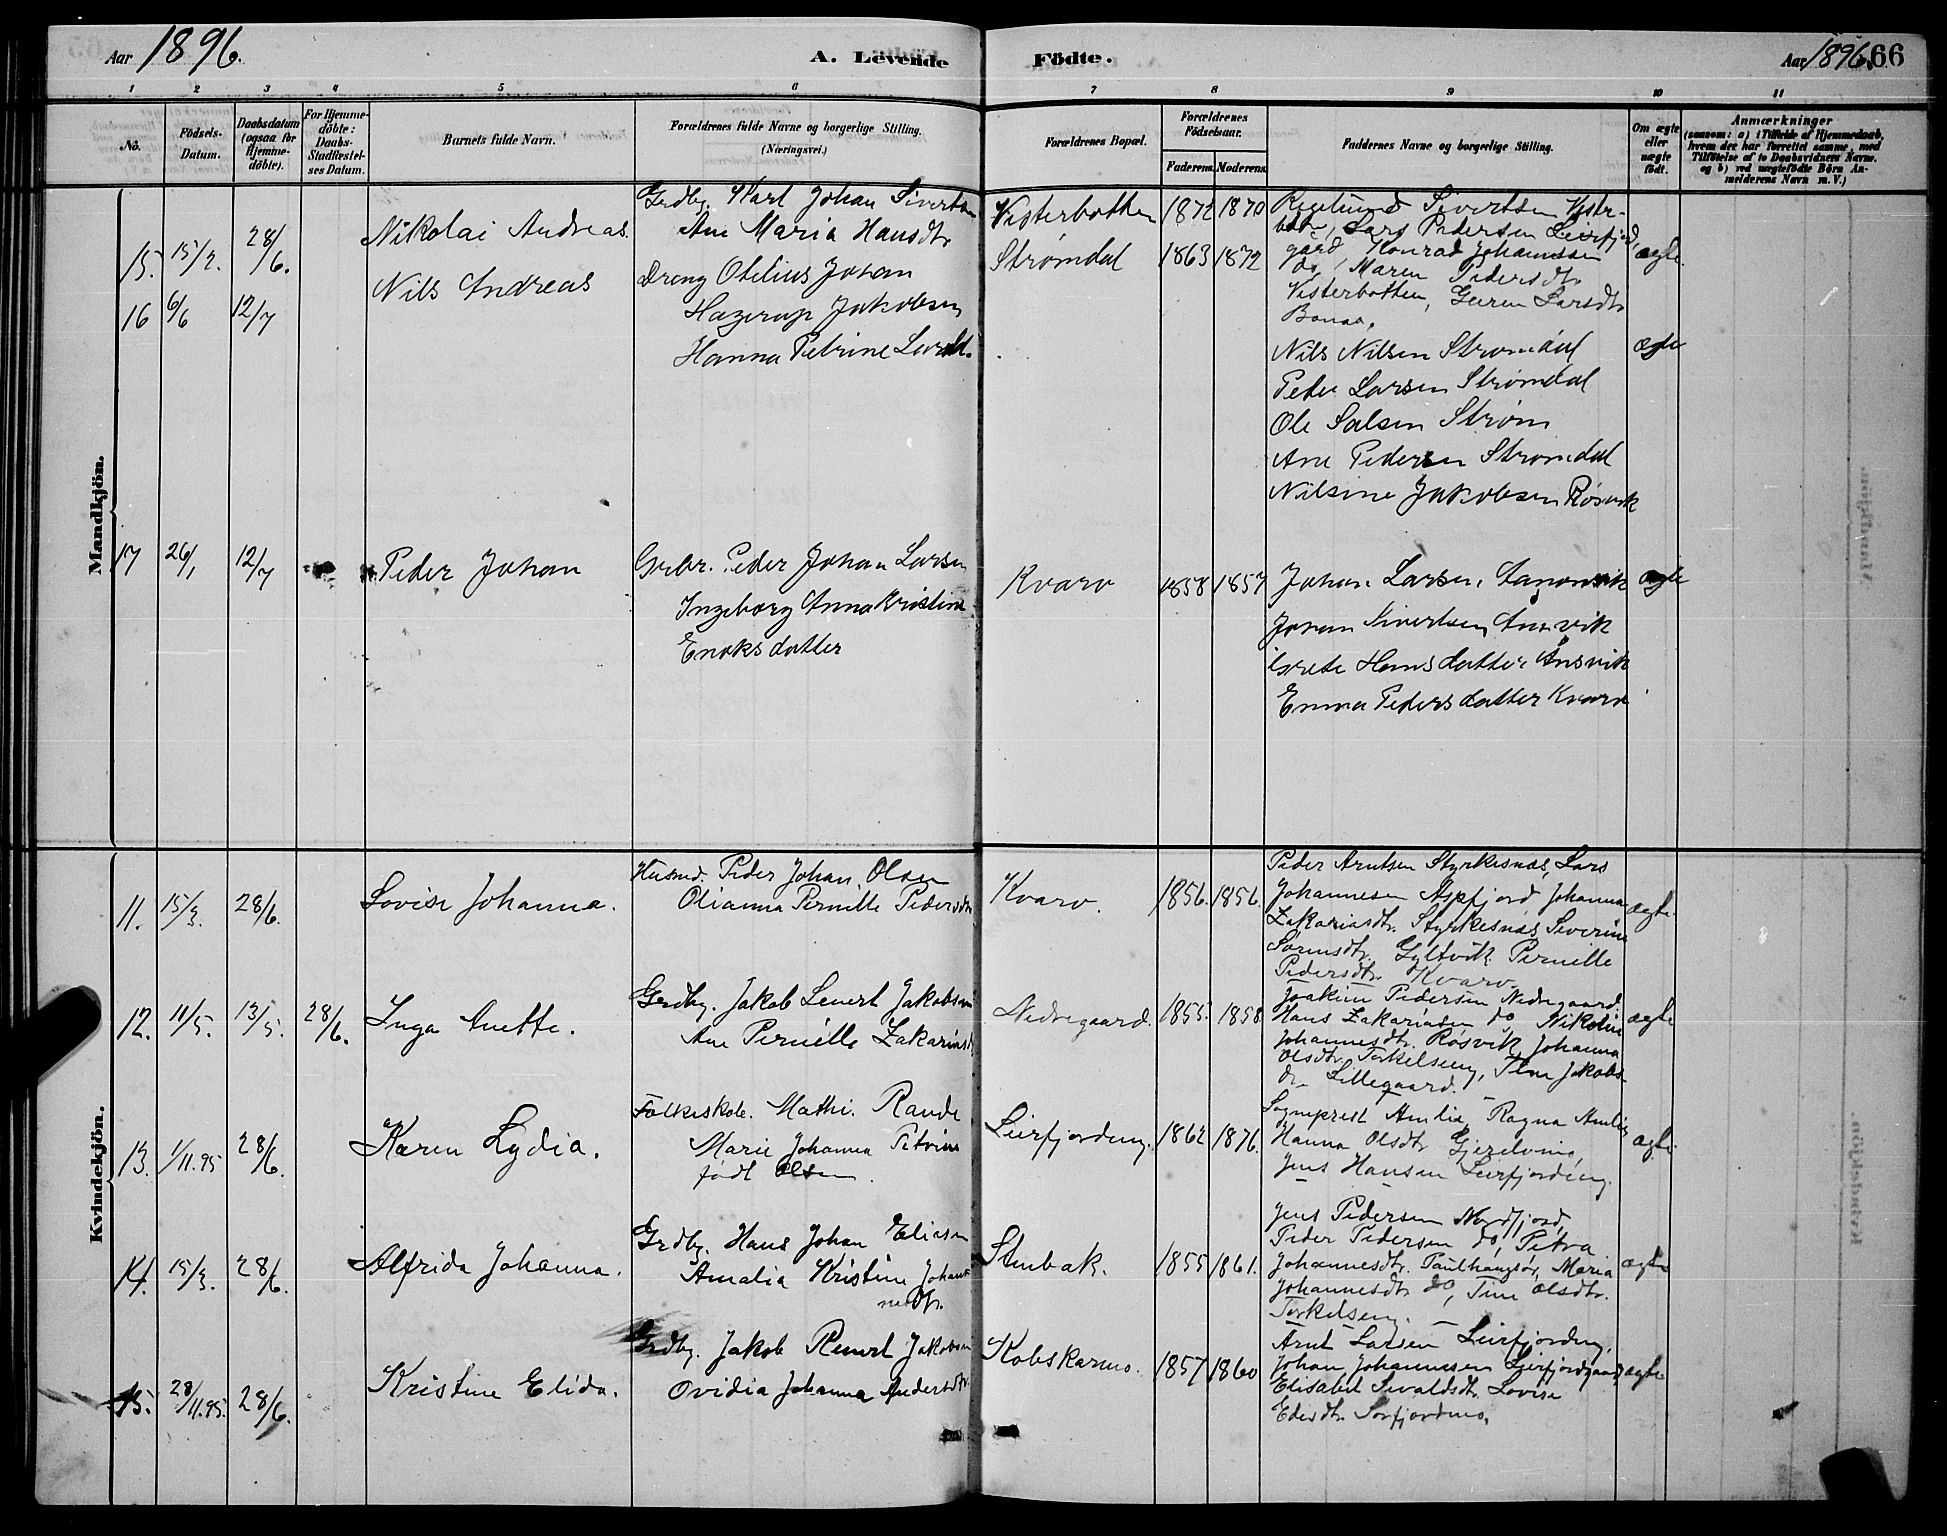 Aar 1896.
A. Levende
Födte.
Aar 1896. 66
1 2 3 4 5 6 7 8 9 10 11
No.
Födsels-
Datum.
Daabsdatum
(ogsaa for
Hjemme-
döbte).
For Hjemme-
döbte:
Daabs-
Stadfæstel-
ses Datum.
Barnets fulde Navn.
Forældrenes fulde Navne og borgerlige Stilling.
(Næringsvei.)
Forældrenes Bopæl.
Forældrenes
Födselsaar.
Faderens. Moderens.
Faddernes Navne og borgerlige Stilling.
Om ægte
eller
uægte
födt.
Anmærkninger
(saasom: a) i Tilfælde af Hjemmedaab,
hvem der har forrettet samme, med
Tilföielse af to Daabsvidners Navne,
og b) ved uægtefödte Börn An-
melderens Navn m. V.)
Mandkjön.
15. 15/2. 28/6. Nikolai Andreas.
Grdbg. Karl Johan Sivertsen
Ane Maria Hansdtr
Vesterbotten 1872 1870
Sivertsen Vestr-
botn, Lars Pedersen Leirfjord,
gård, Konrad Johannessen
do, Maren Pedersdtr
Vesterbotten, Larsdtr
Bonaa.
ægte
16 6/6 12/7 Nils Andreas
Dreng Otelius Johan
Hagerup Jakobsen
Hanna Petrine Larsdt.
Strømdal 1863 1872
Nils Nilsen Strømdal
Peder Larsen Strømdal
Ole Salsen Strøm
Ane Pedersen Strømdal
Nilsine Jakobsen Røsvik
ægte
17 26/1 12/7 Peder Johan
Grbr. Peder Johan Larsen
Ingeborg Anna Kristine
Enoksdatter
Kvarv 1858 1857
Johan Larsen,
Johan Sivertsen, Ansvik
Grete Hansdatter Ånsvik
Emma Pedersdatter Kvarv
ægte
Kvindekjön.
11. 15/3. 28/6. Lovise Johanna.
Husmd. Peder Johan Olsen
Olianna Pernille Pedersdtr
Kvarv. 1856. 1856.
Peder Arntsen Styrkesnæs, Lars
Johannesen Aspfjord, Johanna
Zakariasdtr. Styrkesnæs Severine
Sørensdtr. Gyltvik Pernille
Pedersdtr. Kvarv.
ægte.
12. 11/5. 13/5. 28/6. Inga Anette.
Grdbg. Jakob Lenert Jakobsen
Ane Pernille Zakariasdt
Nedregaard. 1855. 1858.
Joakim Pedersen Nedregaard
Hans Zakariasen do Nikoline
Johannesdtr. Røsvik, Johanna
Olsdtr. Torkelseng, Tina Jakobs-
dr. Lillegaard.
ægte
13. 1/11.95 28/6. Karen Lydia.
Folkeskole. Mathi. Rande
Marie Johanna Petrine
født Olsen.
Leirfjordeng. 1862 1876.
Sogneprest Amlie, Ragna Amlie,
Hanna Olsdtr Gjerelvmo,
Jens Hansen Leirfjordeng.
ægte
14. 15/3. 28/6. Alfrida Johanna.
Grdbg. Hans Johan Eliasen
Amalia Kristine Johan-
nesdtr.
Stenbak. 1855 1861.
Jens Pedersen Nordfjord,
Peder Pedersen do, Petra
Johannesdtr. Maria
Johannesdtr do, Tine Olsdtr.
Torkelseng.
ægte
15. 28/11.95. 28/6. Kristine Elida.
Grdbg. Jakob Renert Jakobsen
Ovidia Johanna Andersdtr
Kobskarmo. 1857 1860
Arnt Larsen Leirfjordeng,
Johan Johannesen Leirfjordgaard
Elisabet Sivaldsdtr. Lovise
Edisdtr. Sørfjordmo.
ægte